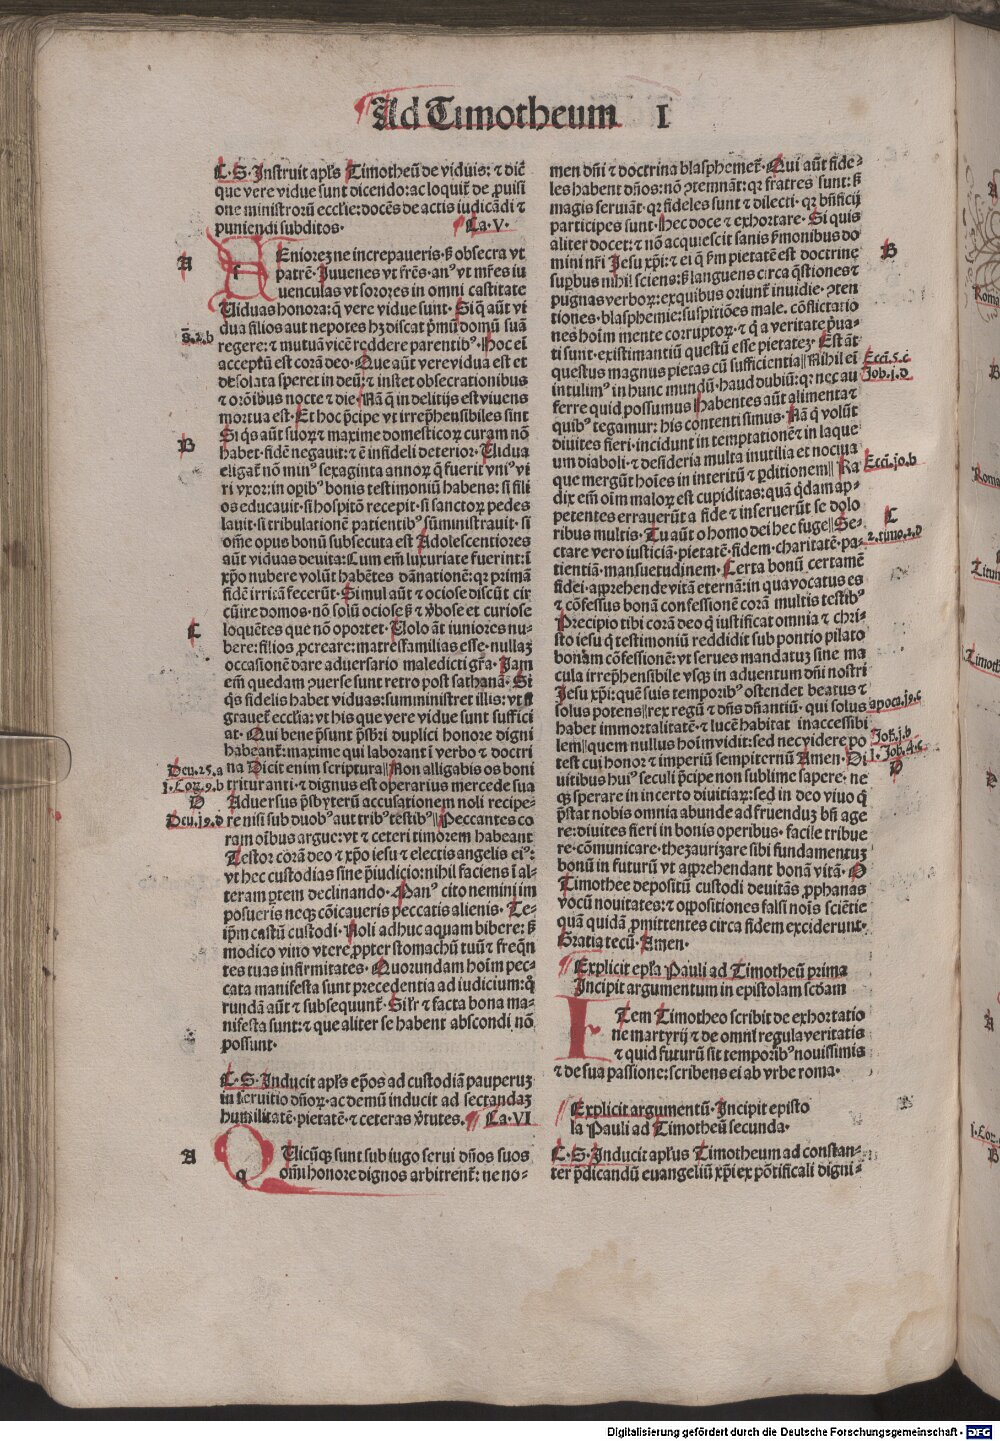 Ad Timotheum I
C·S·Instruit apl's Timotheū de viduis: ⁊ dic̄
que vere vidue sunt dicendo: ac loquit̄ de ꝓuisi
one ministrorū eccl'ie: docēs de actis iudicādi ⁊
puniendi subditos· Ca·V·
A
SEniorē ne increpaueris· s̄ obsecra vt
patrē· Juuenes vt fr̄es· anꝰ vt mr̄es iu
uenculas vt sorores in omni castitate
Uiduas honora: q̄ vere vidue sunt· Si q̄ aūt vi
dua filios aut nepotes hꝫ discat p̄mū domū suā
regere: ⁊ mutuā vicē reddere parentibꝰ· Hoc ei̅
acceptū est corā deo· Que aūt vere vidua est et
desolata speret in deū: ⁊ instet obsecrationibus
⁊ or̄oibus nocte ⁊ die· Nā q̄ in delitijs est viuens
mortua est· Et hoc p̄cipe vt irrep̄hensibiles sint
B
Si q̄s aūt suoꝝ ⁊ maxime domesticoꝝ curam nō
habet· fidē negauit: ⁊ ē infideli deterior· Uidua
eligat̄ nō minꝰ sexaginta annoꝝ q̄ fuerit vniꝰ vi
ri vxor: in oꝑibꝰ bonis testimoniū habens: si fili
os educauit· si hospitō recepit· si sanctoꝝ pedes
lauit· si tribulationē patientibꝰ sūministrauit· si
om̄e opus bonū subsecuta est Adolescentiores
aūt viduas deuita: Cum em̄ luxuriate fuerint: ī
xp̄o nubere volūt habētes dānationē: qꝛ primā
fidē irritā fecerūt· Simul aūt ⁊ ociose discūt cir
cūire domos· nō solū ociose s̄ ⁊ v̄bose et curiose
C
loquētes que nō oportet· Uolo āt iuniores nu-
bere: filios ꝓcreare: matresfamilias esse· nullaꝫ
occasionē dare aduersario maledicti gr̄a· Jam
em̄ quedam ꝯuerse sunt retro post sathanā· Si
q̄s fidelis habet viduas: sumministret illis: vt n̄
grauet̄ eccl'ia: vt his que vere vidue sunt suffici
at· Qui bene p̄sunt p̄sbr̄i duplici honore digni
habeant̄: maxime qui laborant ī verbo ⁊ doctri
Deu.25.a
na Dicit enim scriptura Non alligabis os boni
j.Cor.9.b
trituranti· ⁊ dignus est operarius mercede sua
D
Aduersus p̄sbyterū accusationem noli recipe-
Deu.j9.d
re nisi sub duobꝰ aut tribꝰ testibꝰ Peccantes co
ram oībus argue: vt ⁊ ceteri timorem habeant
Testor corā deo ⁊ xp̄o iesu ⁊ electis angelis eiꝰ:
vt hec custodias sine p̄iudicio: nihil faciens ī al-
teram ꝑtem declinando· Manꝰ cito nemini im
posueris neqꝫ cōicaueris peccatis alienis· Te-
ip̄m castū custodi· Noli adhuc aquam bibere: s̄
modico vino vtere ꝓpter stomachū tuū ⁊ freqn̄
tes tuas infirmitates· Quorundam hoīm pec-
cata manifesta sunt: precedentia ad iudicium: q̄
rundā aūt ⁊ subsequunt̄· Sil'r ⁊ facta bona ma-
nifesta sunt: ⁊ que aliter se habent abscondi nō
possunt·
C·S·Inducit apl's ep̄os ad custodiā pauperuꝫ
in seruitio dn̄oꝝ· ac demū inducit ad sectandaꝫ
humilitatē· pietatē· ⁊ ceteras v̄tutes· Ca·VI
A
QUicūqꝫ sunt sub iugo serui dn̄os suos
om̄i honore dignos arbitrent̄: ne no-
men dn̄i ⁊ doctrina blasphemet̄· Qui aūt fide-
les habent dn̄os: nō ꝯtemnāt: qꝛ fratres sunt: s̄
magis seruiāt· qꝛ fideles sunt ⁊ dilecti· qꝛ bn̄ficij
participes sunt· Hec doce ⁊ exhortare· Si quis
aliter docet: ⁊ nō acquiescit sanis s̄monibus do
B
mini nr̄i Jesu xp̄i: ⁊ ei q̄ s̄m pietatē est doctrine
suꝑbus nihil sciens: s̄ languens circa q̄stiones ⁊
pugnas verboꝝ: ex quibus oriunt̄ inuidie· ꝯten
tiones· blasphemie: suspitiōes male· cōflictatio
nes hoīm mente corruptoꝝ· ⁊ q̄ a veritate p̄ua-
ti sunt· existimantiū questū esse pietateꝫ· Est āt
questus magnus pietas cū sufficientia Nihil ei̅
Eccī.5.c
intulimꝰ in hunc mundū· haud dubiū: qꝛ nec au
Job.j.d
ferre quid possumus Habentes aūt alimenta ⁊
quibꝰ tegamur: his contenti simus· Nā q̄ volūt
diuites fieri· incidunt in temptationē ⁊ in laque
um diaboli· ⁊ desideria multa inutilia et nociua
que mergūt hoīes in interitū ⁊ ꝑditionem Ra
Eccī.jo.b
dix em̄ oīm maloꝝ est cupiditas: quā q̄dam ap-
petentes errauerūt a fide ⁊ inseruerūt se dolo
C
ribus multis· Tu aūt o homo dei hec fuge Se-
2.timo.2.d
ctare vero iusticiā· pietatē· fidem· charitatē· pa-
tientiā· mansuetudinem· Certa bonū certamē
fidei· apprehende vitā eternā: in qua vocatus es
⁊ cōfessus bonā confessionē corā multis testibꝰ
Precipio tibi corā deo q̄ iustificat omnia ⁊ chri-
sto iesu q̄ testimoniū reddidit sub pontio pilato
bonam cōfessionē: vt serues mandatuꝫ sine ma
cula irrep̄hensibile vsqꝫ in aduentum dn̄i nostri
Jesu xp̄i: quē suis temporibꝰ ostendet beatus ⁊
solus potens rex regū ⁊ dn̄s dn̄antiū· qui solus
apoca.j9.c
habet immortalitatē· ⁊ lucē habitat inaccessibi
lem quem nullus hoīm vidit: sed nec videre po
Joh.j.b
test cui honor ⁊ imperiū sempiternū Amen· Di
1.Joh.4.c
D
uitibus huiꝰ seculi p̄cipe non sublime sapere· ne
qꝫ sperare in incerto diuitiaꝝ: sed in deo viuo q̄
p̄stat nobis omnia abunde ad fruenduꝫ bn̄ age
re: diuites fieri in bonis operibus· facile tribue
re· cōmunicare· thezaurizare sibi fundamentuꝫ
bonū in futurū vt apprehendant bonā vitā· O
Timothee depositū custodi deuitās ꝓphanas
vocū nouitates: ⁊ oppositiones falsi nois̄ sciētie
quā quidā ꝓmittentes circa fidem exciderunt·
Gratia tecū· Amen·
Explicit epl'a Pauli ad Timotheū prima
Incipit argumentum in epistolam scd̄am
ITem Timotheo scribit de exhortatio
ne martyrij ⁊ de omni regula veritatis
⁊ quid futurū sit temporibꝰ nouissimis
⁊ de sua passione: scribens ei ab vrbe roma·
Explicit argumentū· Incipit episto
la Pauli ad Timotheū secunda·
C·S·Inducit apl'us Timotheum ad constan-
ter p̄dicandū euangeliū xp̄i ex pōtificali digni-
Digitalisierung gefördert durch die Deutsche Forschungsgemeinschaft - DFG